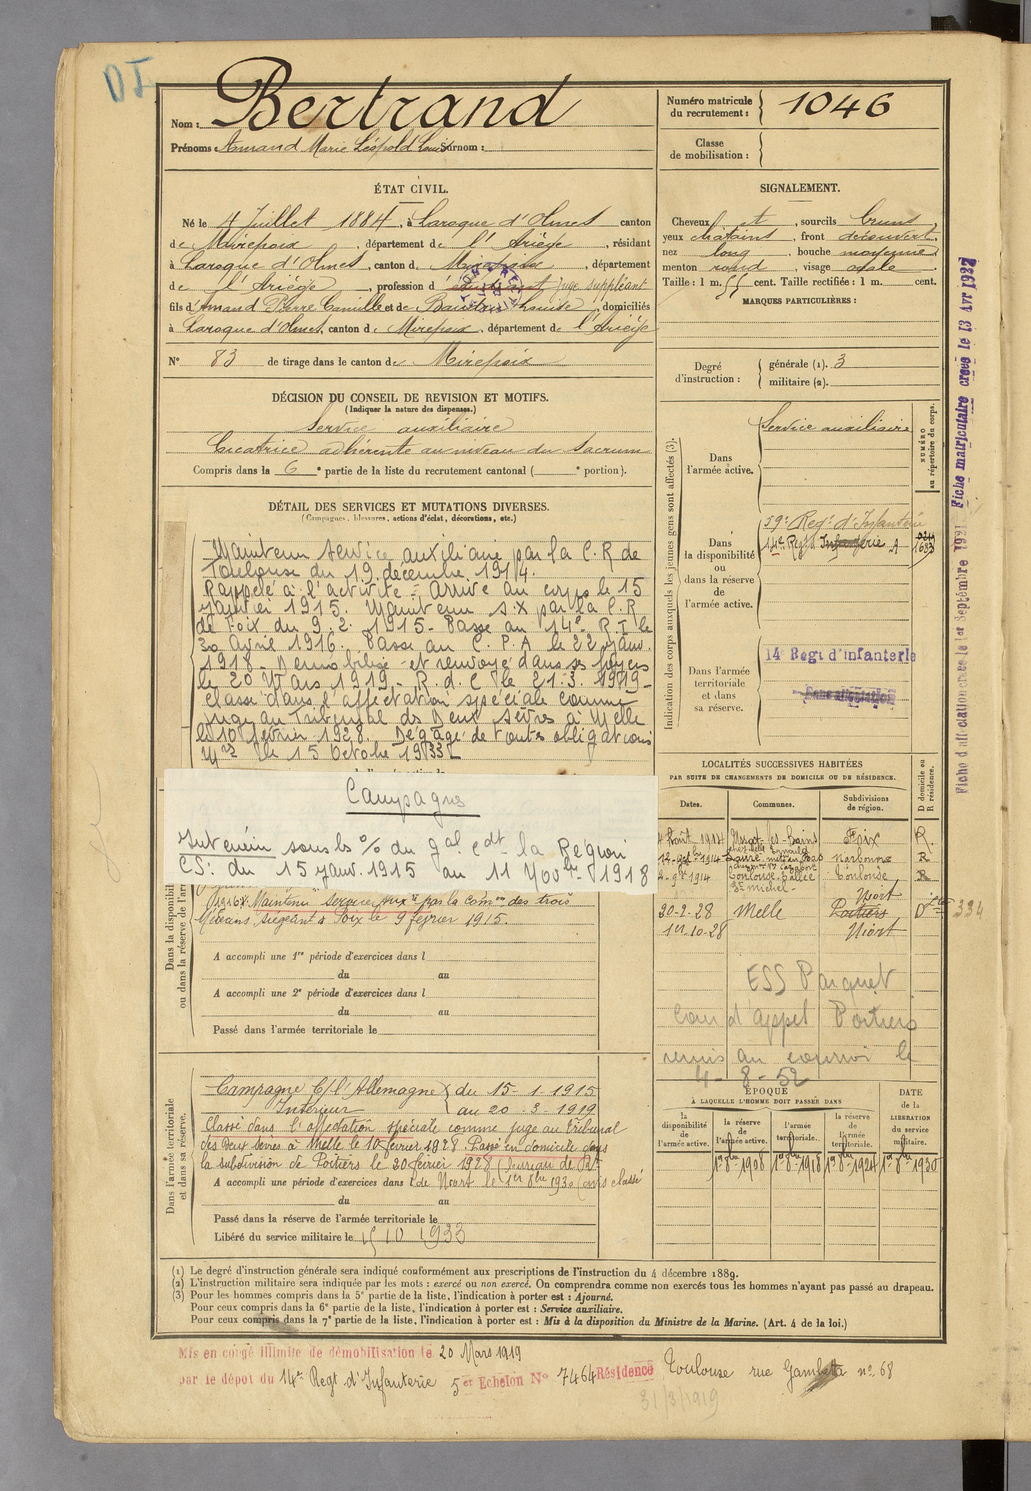 DI
Nom : Bertrand
Prénoms : Armand Marie Léopold Louis Surnom :
Numéro matricule du recrutement : 1046
Classe de mobilisation :
ÉTAT CIVIL.
Né le 4 Juillet 1884, à Laroque d'Olmes canton
de Mirepoix, département de l'Ariège, résidant
à Laroque d'Olmes, canton de Mirepoix, département
de l'Ariège, profession d étudiant juge suppléant
fils d'Armand Pierre Camille et de Louise, domiciliés
à Laroque d'Olmes, canton de Mirepoix, département de l'Ariège
N° 83 de tirage dans le canton de Mirepoix
SIGNALEMENT.
Cheveux et, sourcils bruns
yeux chatains, front découvert,
nez long, bouche moyenne
menton rond, visage ovale
Taille : 1 m. 55 cent. Taille rectifiée : 1 m. cent.
MARQUES PARTICULIÈRES :
Degré d'instruction : générale (1). 3
militaire (2).
DÉCISION DU CONSEIL DE REVISION ET MOTIFS.
(Indiquer la nature des dispenses.)
Service auxiliaire
Cicatrice adhérente au niveau du Sacrum
Compris dans la 6e partie de la liste du recrutement cantonal ( e portion).
DÉTAIL DES SERVICES ET MUTATIONS DIVERSES.
(Campagnes, blessures, actions d'éclat, décorations, etc.)
Maintenu service auxiliaire par la C.R de
Toulouse du 19 décembre 1914.
Rappelé à l'activité - Arrivé au corps le 15
Janvier 1915. Maintenu s.x par la C.R
de Foix du 9.2.1915- Passé au 14e R.I le
30 Avril 1916. Passé au C.P.A le 22 janv.
1918- Démobilisé et renvoyé dans ses foyers
le 20 Mars 1919- R.d.C le 21.3.1919-
Classé dans l'affectation spéciale comme
juge au Tribunal des Deux Sèvres à Melle
le 10 février 1928. Dégagé de toutes obligations
Mres le 15 Octobre 1933
Campagne
Intérieur sous les o/ du gal Cdt la Région
CS: du 15 janv. 1915 au 11 Novbre 1918
Maintenu Service auxre par la comon des trois
Médecins siégeant à Foix le 9 février 1915.
Dans la disponibilité ou dans la réserve de l'armée active.
A accompli une 1re période d'exercices dans l
du au
A accompli une 2e période d'exercices dans l
du au
Passé dans l'armée territoriale le
Dans l'armée territoriale et dans sa réserve.
Campagne C/ l'Allemagne du 15-1-1915
Intérieur au 20-3-1919
Classé dans l'affectation spéciale comme juge au Tribunal
des Deux Sèvres à Melle le 10 février 1928 Passé en domicile dans
la subdivision de Poitiers le 20 février 1928 (Bureau de Rt
A accompli une période d'exercices dans l de Niort le 1er 8bre 1930
du au
Passé dans la réserve de l'armée territoriale le
Libéré du service militaire le 15 10 1933
Indication des corps auxquels les jeunes gens sont affectés (3).
Dans l'armée active. Service auxiliaire
NUMÉRO au répertoire du corps.
Dans la disponibilité ou dans la réserve de l'armée active.
59e Regt d'Infanterie
14e Regt d'Infanterie A 1683
Dans l'armée territoriale et dans sa réserve.
14 Regt d'infanterie
Sans affectation
LOCALITÉS SUCCESSIVES HABITÉES
PAR SUITE DE CHANGEMENTS DE DOMICILE OU DE RÉSIDENCE.
Dates. Communes. Subdivisions de région. D domicile ou R résidence.
Août 1914 Ussat-les-Bains Foix R.
12 1914 Narbonne R
2-9bre 1914 Toulouse Toulouse R
St Michel-
20-2-28 Melle Poitiers Niort D 334
1er-10-28 Niort
ESS Parquet
Cour d'appel Poitiers
remis au courroi le
4-8-52
ÉPOQUE
À LAQUELLE L'HOMME DOIT PASSER DANS
la disponibilité de l'armée active. la réserve de l'armée active. l'armée territoriale. la réserve de l'armée territoriale. DATE de la LIBÉRATION du service militaire.
1er 8bre 1908 1er 8bre 1918 1er 8bre 1924 1er 8bre 1930
Fiche d'affectation créée le 1er Septembre 1921 Fiche matriculaire créée le 13 Avr 1927
(1) Le degré d'instruction générale sera indiqué conformément aux prescriptions de l'instruction du 4 décembre 1889.
(2) L'instruction militaire sera indiquée par les mots : exercé ou non exercé. On comprendra comme non exercés tous les hommes n'ayant pas passé au drapeau.
(3) Pour les hommes compris dans la 5e partie de la liste, l'indication à porter est : Ajourné.
Pour ceux compris dans la 6e partie de la liste, l'indication à porter est : Service auxiliaire.
Pour ceux compris dans la 7e partie de la liste, l'indication à porter est : Mis à la disposition du Ministre de la Marine. (Art. 4 de la loi.)
Mis en congé illimité de démobilisation le 20 Mars 1919
par le dépôt du 14e Regt d'Infanterie 5er Echelon N° 7464 Résidence Toulouse rue Gambetta n° 68
31/3/1919